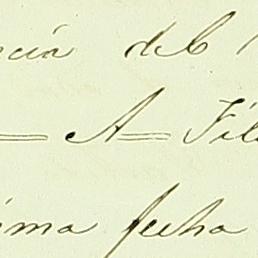 ncia del
= A = Fil
ima fecha